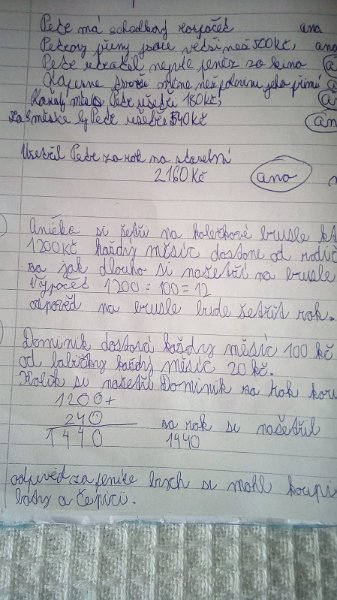 Petr má schodkový rozpočet ano
Petrovy příjmy jsou větší než 500 Kč, ano
Petr utratil nejvíc peněz za kino
Kapesné tvoří méně než polovinu jeho příjmů
Každý měsíc Petr ušetří 180 Kč,
Za měsíce by Petr ušetřil 540 Kč ano
Ušetřil Petr za rok na stavební
2160 Kč ano
Anička si šetří na kolečkové brusle
1200 Kč každý měsíc dostane od
za jak dlouho si našetří na brusle
Výpočet 1200 : 100 = 12
odpověď na brusle bude šetřit rok.
Dominik dostává každý měsíc 100 kč
od babičky každý měsíc 20 kč.
Kolik si našetří Dominik za rok
1200+
240 za rok si našetřil
1440 1440
odpověď za peníze bych si mohl
boty a čepici.